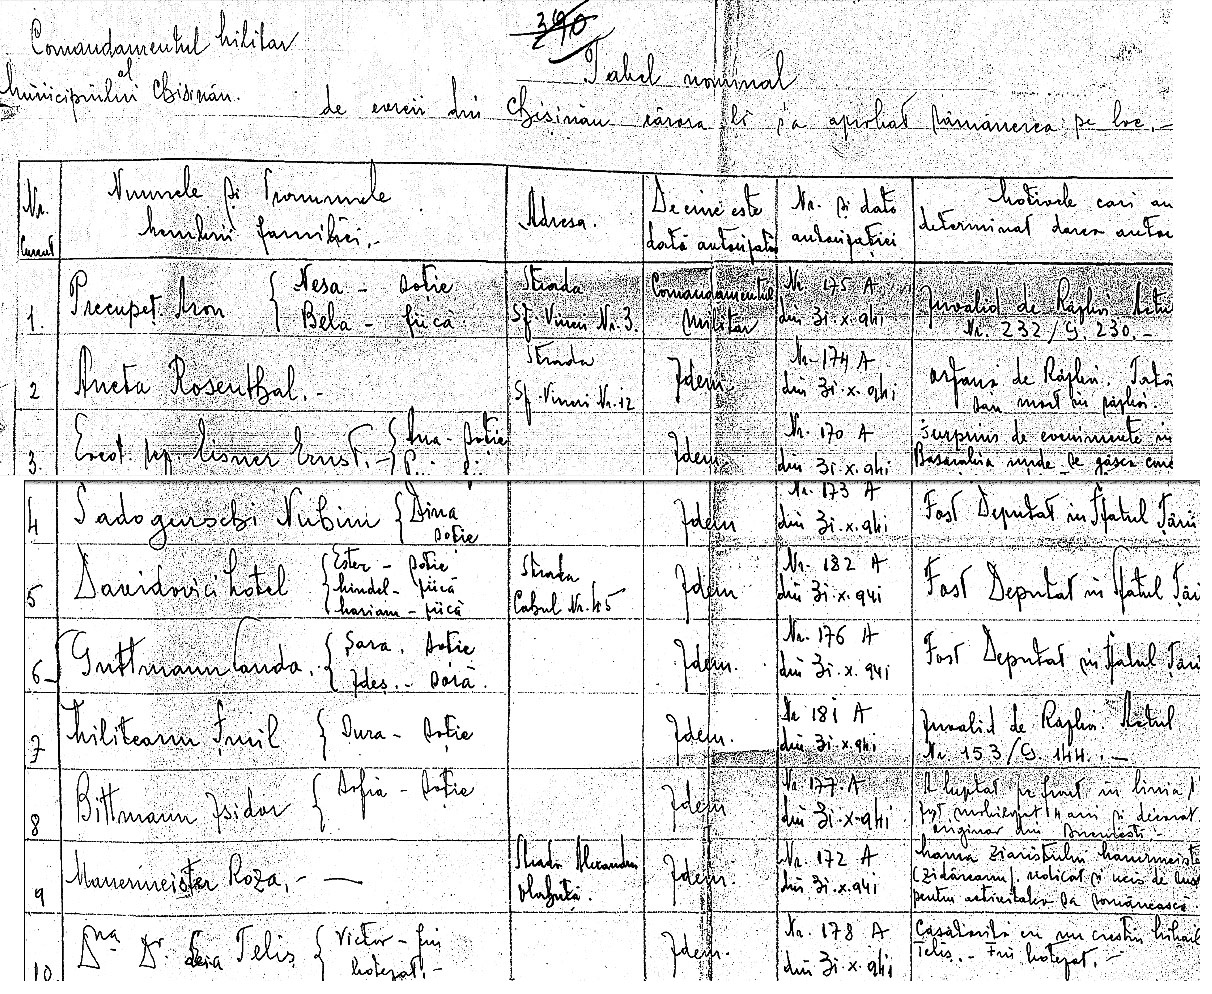 Comandamentul Militar
al
Municipiului Chisinău.
390
Tabel nominal
de evreii din Chisinău cărora li s'a aprobat rămânerea pe loc.-
Nr. Curent
Numele și Pronumele
membrii familiei.-
Adresa.
De cine este
dată autorizația
Nr. și data
autorizației
Motivele cari au
determinat darea autor
1.
Precupeț Aron
Nesa - soție
Bela - fiică
Strada
Sf. Vineri Nr. 3.
Comandamentul
Militar
Nr. 175 A
din 31.X.941
Invalid de Răsboi. Actul
Nr. 232/G. 230.-
2
Aneta Rosenthal.-
Strada
Sf. Vineri Nr. 12
Idem.
Nr. 174 A
din 31.X.941
orfană de Răsboi. Tatăl
său mort în răsboi.
3.
Evot. Eisner Ernst.-
soție
Idem.
Nr. 170 A
din 31.X.941
surprins de evenimente în
Basarabia unde se găsea
4
Sadogurschi Nubin
Dina
soție
Idem
Nr. 173 A
din 31.X.941
Fost Deputat in Sfatul Țării
5
Davidovici Motel
Ester - soție
Mindel - fiică
Mariam - fiică
Strada
Cahul Nr. 45
Idem
Nr. 182 A
din 31.X.941
Fost Deputat in Sfatul Țării
6
Guttmann Landa.
Șara. soție
Ides.- soră.
Idem.
Nr. 176 A
din 31.X.941
Fost Deputat in Sfatul Țării
7
Militeanu Emil
Dura - soție
Idem.
Nr 181 A
din 31.X.941
Invalid de Răsboi. Actul
Nr 153/G. 144.-
8
Bittmann Isidor
Sofia - soție
Idem
Nr. 177. A
din 31.X.941
A luptat pe front in linia
fost 4 ani și decorat
originar din
9
Mauermeister Roza.-
Strada Alexandru
Vlahuță.
Idem.
Nr. 172 A
din 31.X.941
Mama ziaristului Mauermeister
(Zidăreanu). ridicat și ucis de
pentru activitatea sa românească
10
Dna Dr. Telis
Victor - fiu
botezat.-
Idem
Nr. 178 A
din 31.X.941
Casatorită cu un crestin Mihail
Telis.- Fiu botezat.-